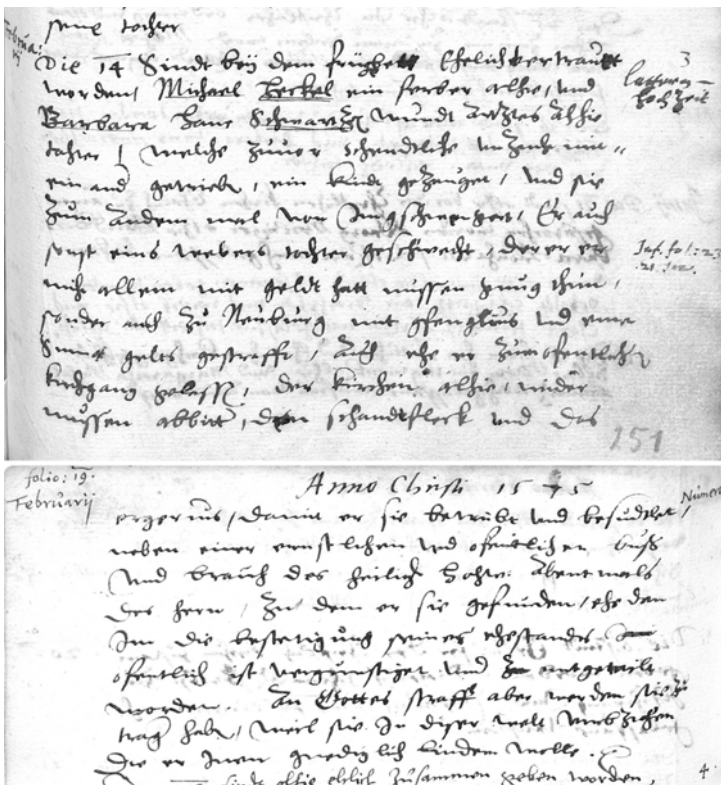 seine tochter
Februarij
Die 14 Sindt bey dem früegebett Ehelich vertrautt
3
worden, Michael Heckel ein ferber alhie, und
hochzeit
Barbara Hans Schwartzen wundt Artztes alhie
tochter, welche zuvor schendtliche unzucht mitt
einand getrieben, ein kindt gezeuget, und sie
zum andern mal von Im geschwengert, Er auch
sonst eins webers tochter geschwecht, derer er
Inf. fol: 23
nicht allein mit geldt hatt müssen gnug thun,
sonder auch zu Neuburg mit gfengknus und einer
Summa gelts gestrafft, Auch ehe er zum ofentlichen
kirchgang gelassen, der kirchen alhie, wider
müssen abbitten, den schandtfleck und das
251
folio: 19.
Anno Christi 1575
Februarij
ergernus, damit er sie betrübt und besudlet,
neben einer ernstlichen und ofentlichen buß
und brauch des heilich Abentmals
des Hern, zu dem er sich gefunden, ehe dan
Im die bestetigung seines ehestandes
ofentlich ist vergünstiget und mitgeteilt
worden. An Gottes straff aber werden sie zu
tragen haben, weil sie In diser welt umbziehen
die er Inen gnediglich lindern wolle.
4.
sindt alhie ehlich zusammen geben worden,